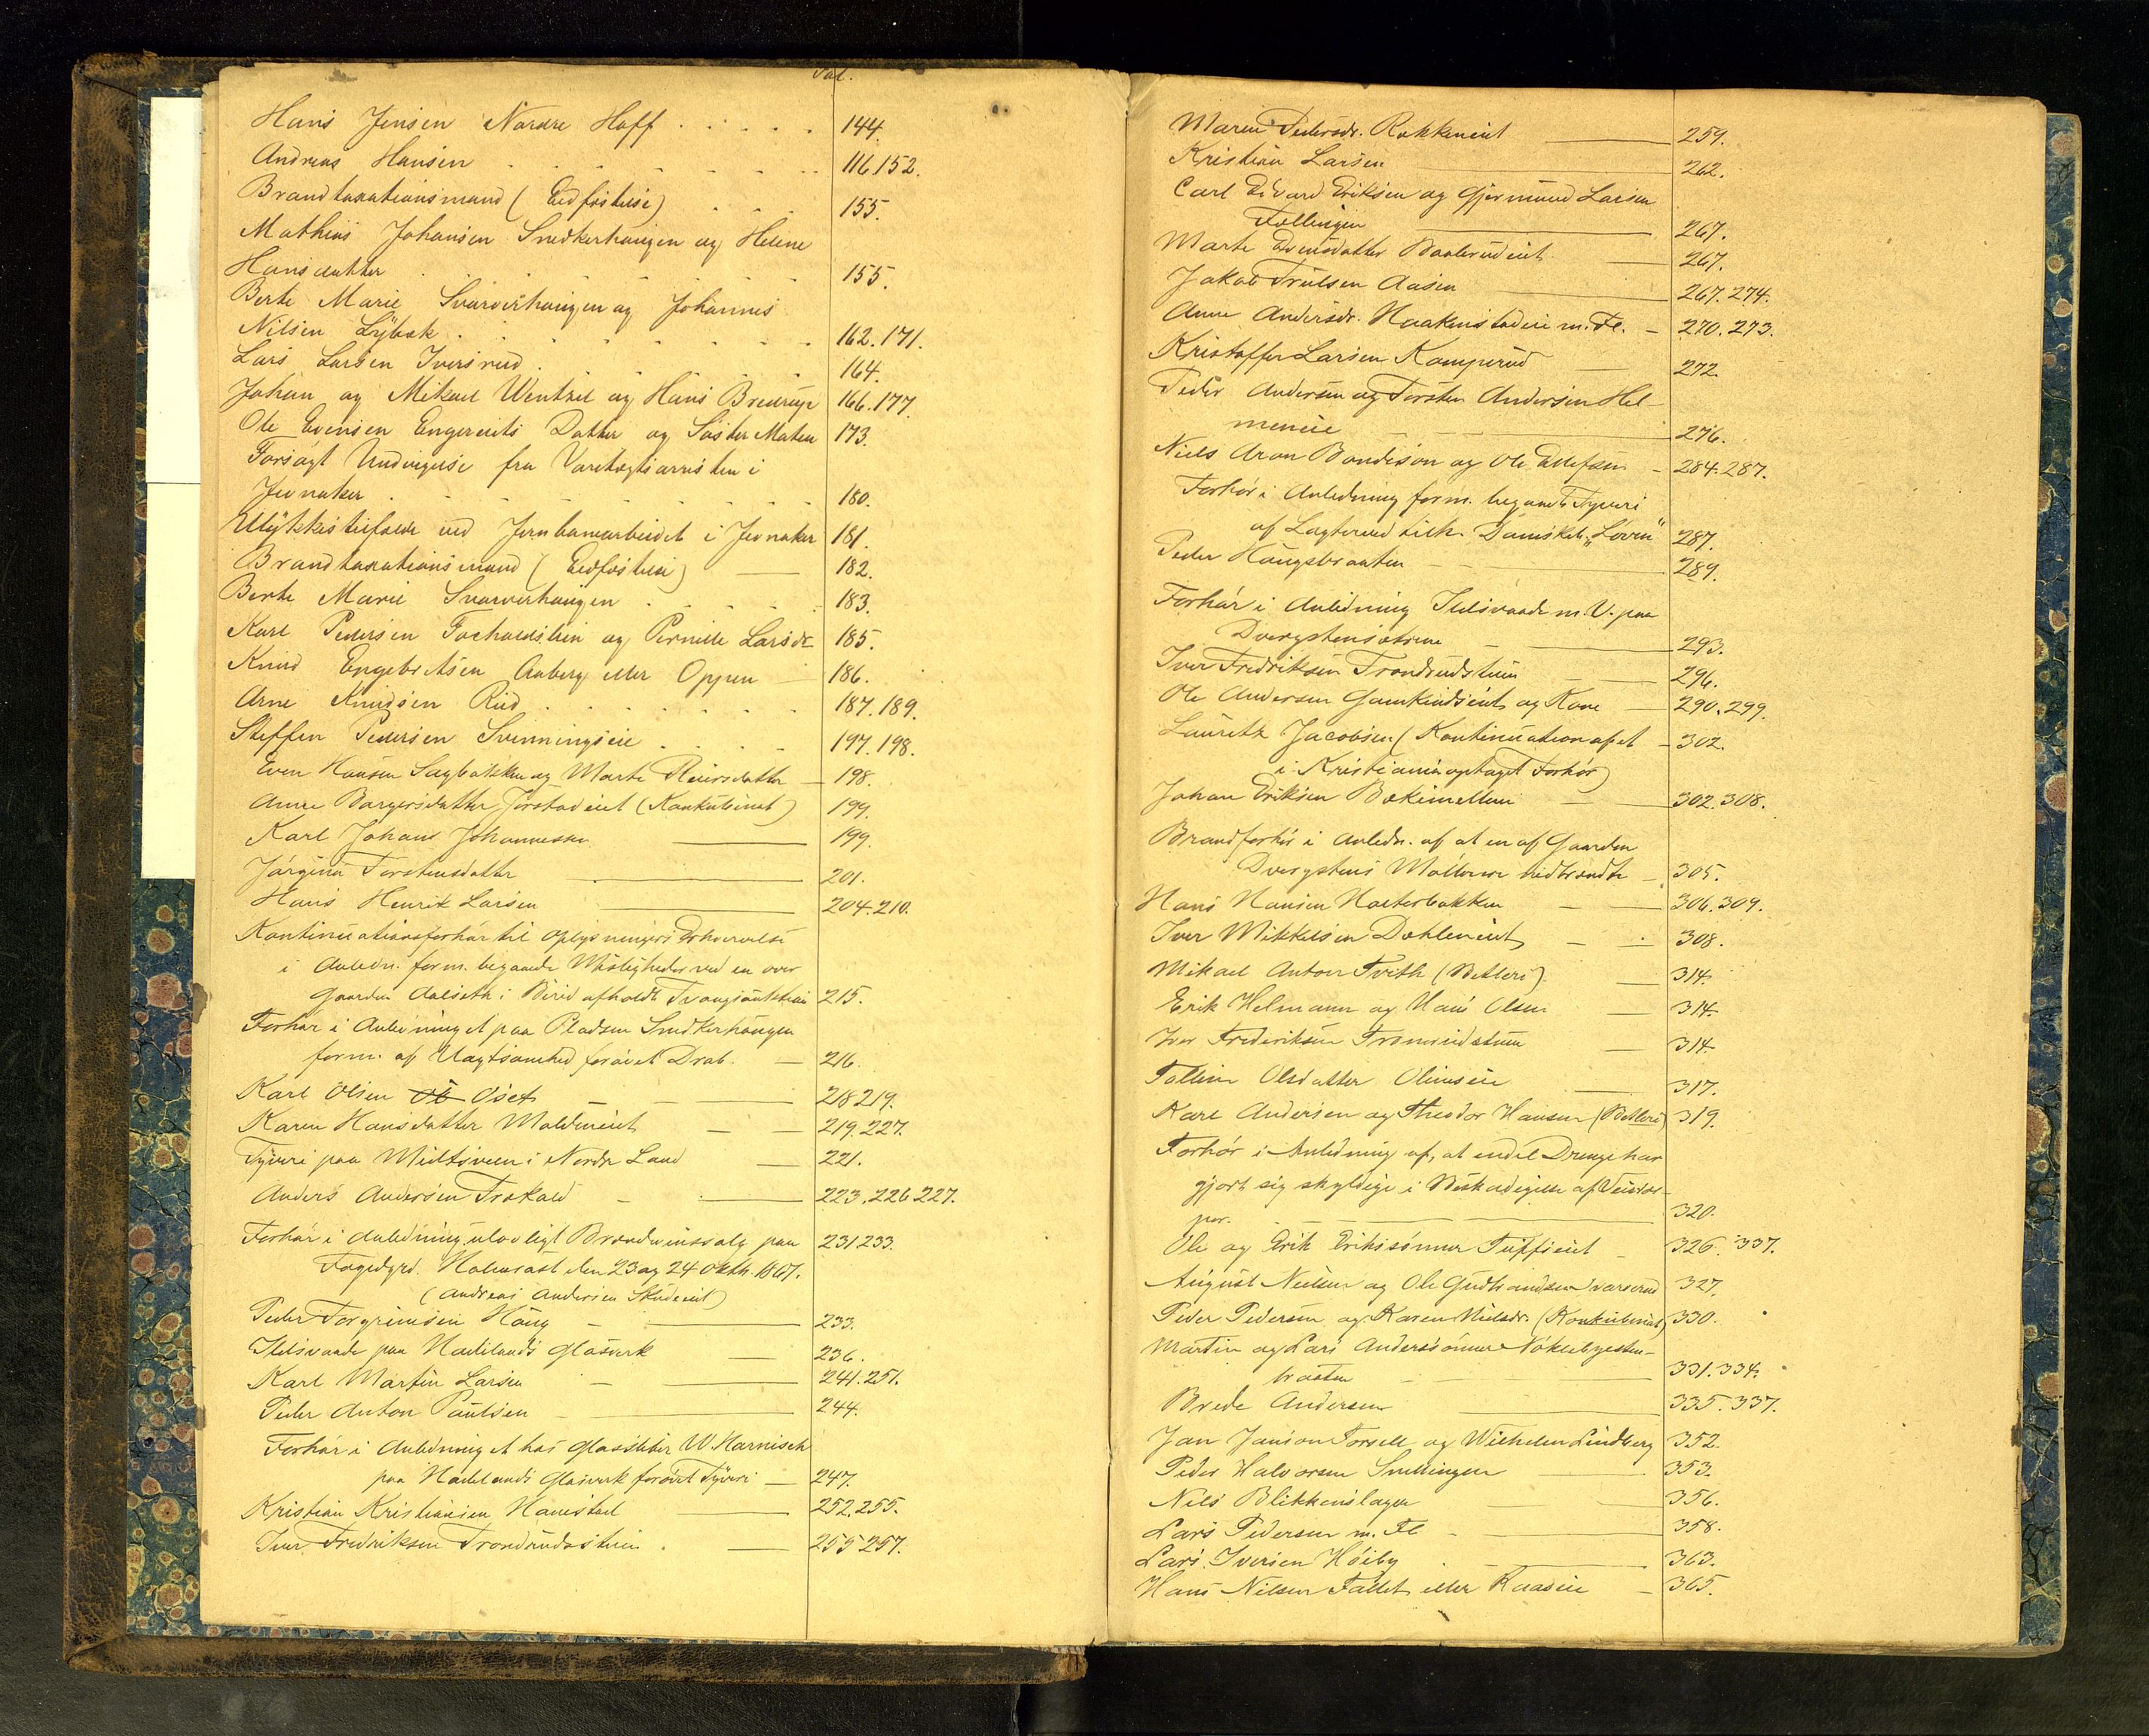 Fol.
Hans Jensen Nordre Hoff . . . . . 144.
Andreas Hansen . . . . . . 116 152.
Brandtaxationsmand (Edfæstelse) . . . 155.
Mathias Johansen Snedkerhaugen og Helene
Hansdatter . . . . . . . 155.
Berte Marie Svarverhaugen og Johannes
Nilsen Lybæk . . . . . . . 162. 171.
Lars Larsen Iversrud . . . . . 164.
Johan og Mikael Wentzel og Hans Bredrup 166. 177.
Ole Evensen Engereiets Datter og Søster Maten 173.
Forsøgt Undvigelse fra Varetægtsarresten i
Jevnaker . . . . . . . 180.
Ulykkestilfælde ved Jernbanearbeidet i Jevnaker 181.
Brandtaxationsmænd (Edfæstelse) — 182.
Berte Marie Svarverhaugen . . . . . 183.
Karl Pedersen Fochaldseien og Pernille Larsdr 185.
Knud Engebretsen Aaberg eller Oppen — 186.
Arne Knudsen Rud . . . . . . . 187. 189.
Steffen Pedersen Svenningseie . . . . 197. 198.
Even Hansen Sagbakken og Marte Reiersdatter — 198.
Anne Borgersdatter Jørstadeiet (Konkubinat) 199.
Karl Johan Johannessen — 199.
Jørgine Torstensdatter — 201.
Hans Henrik Larsen — 204. 210.
Kontinuationsforhør til Oplysningers Erhvervelse
i Anledn. form. begaaede Misligheder ved en over
Gaarden Aalseth i Birid afholdt Tvangsauktion 215.
Forhør i Anledning et paa Pladsen Snedkerhaugen
form. af Uagtsomhed forøvet Drab. — 216.
Karl Olsen Oset — 218 219.
Karen Hansdatter Moldeneiet — — 219. 227.
Tyveri paa Miltsveen i Nordre Land — 221.
Anders Andersen Trøkald — — 223. 226 227.
Forhør i Anledning ulovligt Brændevinssalg paa 231 233.
Fogedgrd. Holmsast den 23 og 24 Oktb. 1867.
(Andreas Andersen Skudeiet)
Peder Torgrimsen Haug — — 233.
Ildsvaade paa Hadelands Glasværk — 236.
Karl Martin Larsen — — 241. 251.
Peder Anton Paulsen — — 244.
Forhør i Anledning et hos Glassliber W. Harnisch
paa Hadelands Glasværk forøvet Tyveri — 247.
Kristian Kristiansen Hamstad — 252. 255.
Iver Fredriksen Trondrudseien . — 255 257.
Maren Pedersdr. Rækkeneiet — 259.
Kristian Larsen — 262.
Carl Edvard Eriksen og Gjermund Larsen
Follingen — 267.
Marte Evensdatter Baalerudeiet — 267.
Jakob Trulsen Aasen — 267. 274.
Anne Andersdr. Haakenstadeie m. Fl. — 270. 273.
Kristoffer Larsen Kamperud — 272.
Peder Andersen og Torsten Andersen Hel-
meneie — 276.
Niels Aron Bondeson og Ole Ellefsen — 284. 287.
Forhør i Anledning form. begaaet Tyveri
af Lagterred tilh. Dampskib. "Løven" 287.
Peder Haugsbraaten — 289.
Forhør i Anledning Ildsvaade m. V. paa
Dvergstensætrene — 293.
Iver Fredriksen Trondrudseien — 296.
Ole Andersen Gamkindseiet og Kone — 290. 299.
Lauritz Jacobsen (Kontinuation af et — 302.
i Kristiania optaget Forhør)
Johan Eriksen Bækimellem — 302. 308.
Brandforhør i Anledn. af at en af Gaarden
Dvergstens Møllerier nedbrændte — 305.
Hans Hansen Hælterbakken — 306. 309.
Iver Mikkelsen Dæhleneiet — 308.
Mikael Anton Tvith (Betleri) — 314.
Erik Helmann og Hans Olsen — 314.
Iver Frederiksen Tronrudseien — 314.
Tolline Olsdatter Olimseie — 317.
Karl Andersen og Theodor Hansen (Betleri) 319.
Forhør i Anledning af, at endel Drenge har
gjort sig skyldige i Beskadigelse af
320.
Ole og Erik Erikssønner Tuffseiet — 326. 337.
August Nielsen og Ole Gudbrandsen Ivarsrud 327.
Peder Pedersen og Karen Nielsdr. (Konkubinat) 330.
Martin og Lars Anderssønner Nøklebyesten-
braaten — 331. 334.
Brede Andersen — 335. 337.
Jan Janson Torsell og Wilhelm Lindberg 352.
Peder Halvorsen Smellingen — 353.
Nils Blikkenslager — 356.
Lars Pedersen m. Fl. — 358.
Lars Iversen Høiby — 363.
Hans Nilsen Fallet eller Raaseie — 365.